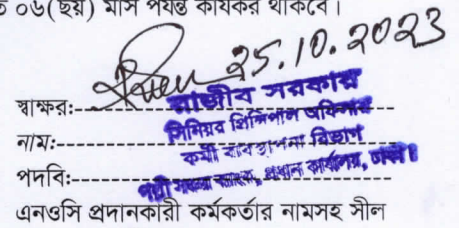 ০৬(ছয়) মাস পর্যন্ত কার্যকর থাকবে।
25.10.2023
স্বাক্ষর:
রাজীব সরকার
সিনিয়র প্রিন্সিপাল অফিসার
নাম:
কর্মী ব্যবস্থাপনা বিভাগ
পদবি:
পল্লী সঞ্চয় ব্যাংক, প্রধান কার্যালয়, ঢাকা।
এনওসি প্রদানকারী কর্মকর্তার নামসহ সীল